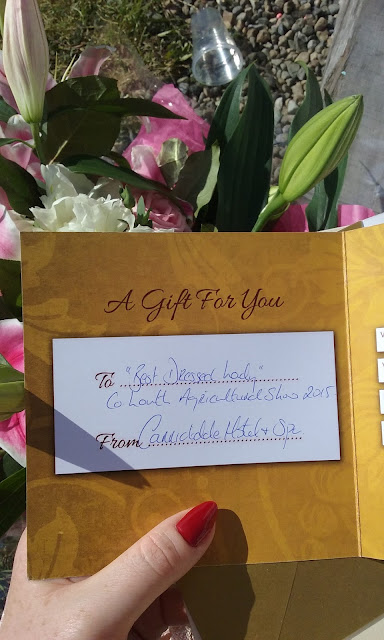 A Gift For You
To "Best Dressed Lady"
Co Louth Agricultural Show 2015
From Carrickdale Hotel + Spa